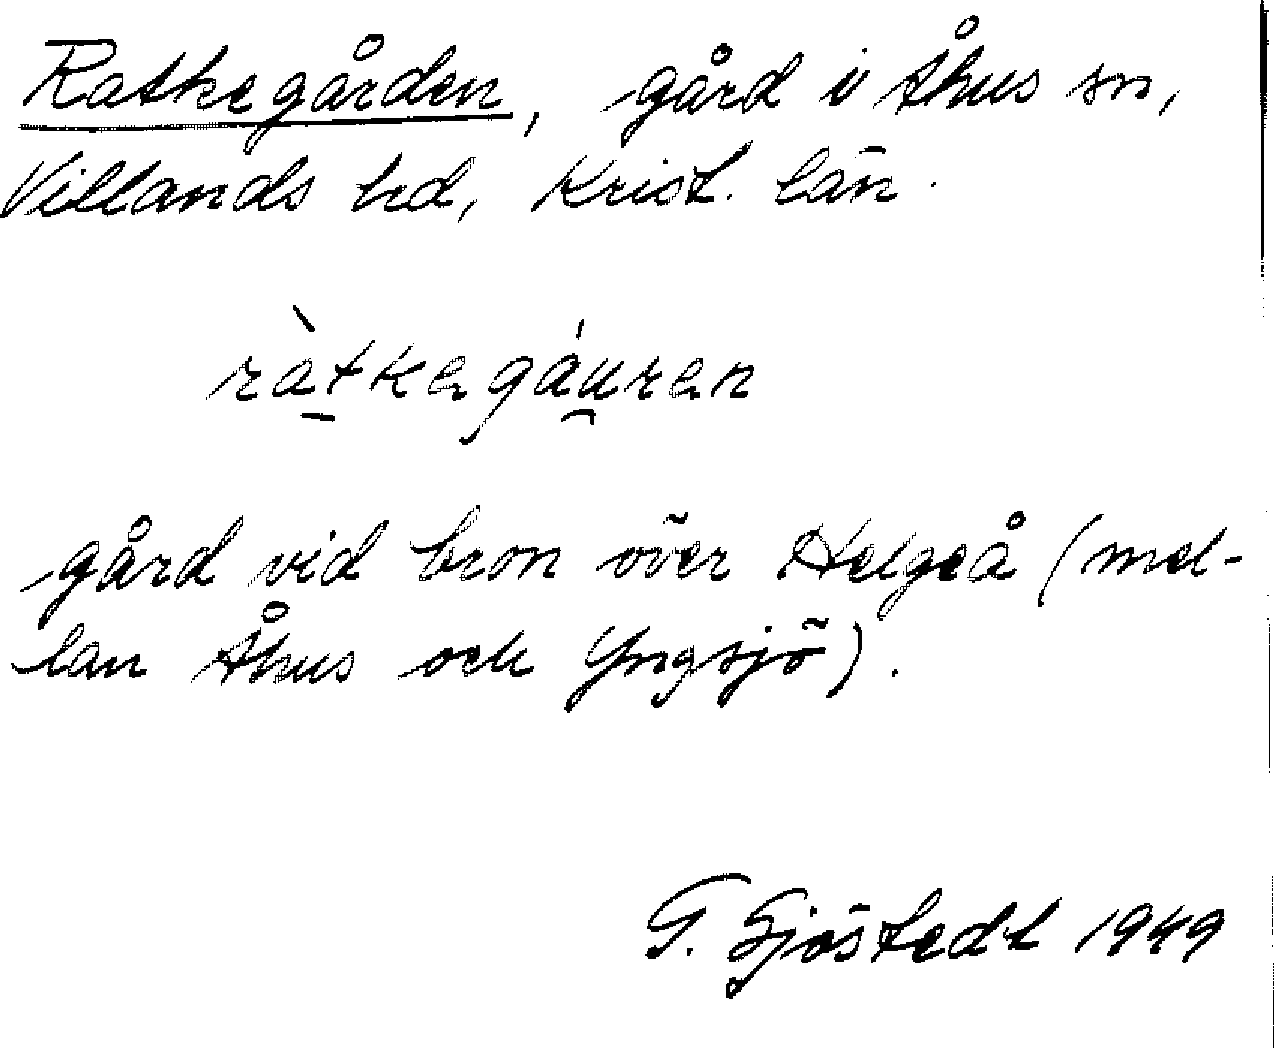 Ratkegården, gård i Åhus sn,
Villands hd, Krist. län.
ràtkegáuren
gård vid bron över Helgeå (mel-
lan Åhus och Yngsjö).
G. Sjöstedt 1949